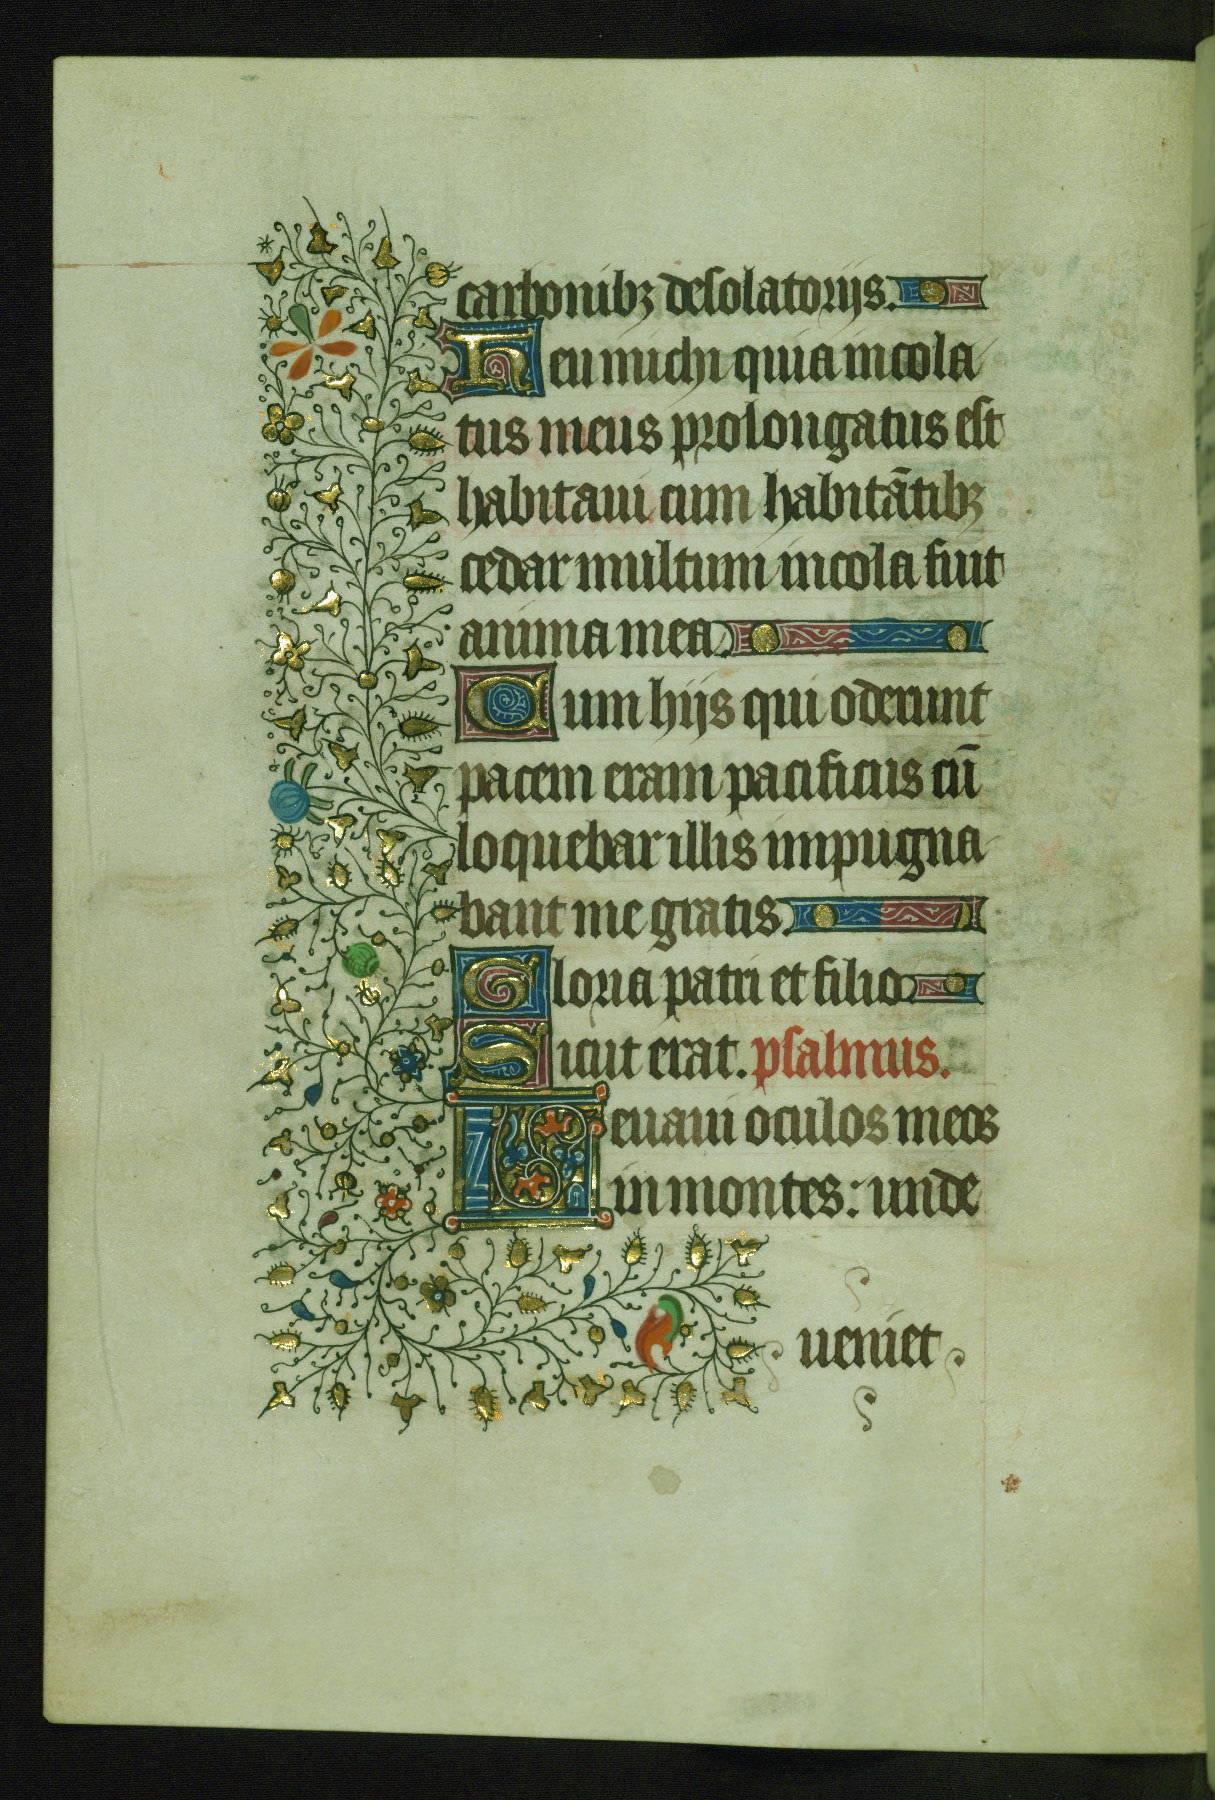 carbonibꝫ desolatorijs.
Heu michi quia incola
tus meus prolongatus est
habitaui cum habitātibꝫ
cedar multum incola fuit
anima mea.
Cum hijs qui oderunt
pacem eram pacificus cū
loquebar illis impugna
bant me gratis.
Gloria patri et filio
Sicut erat. psalmus.
Leuaui oculos meos
in montes: unde
ueniet